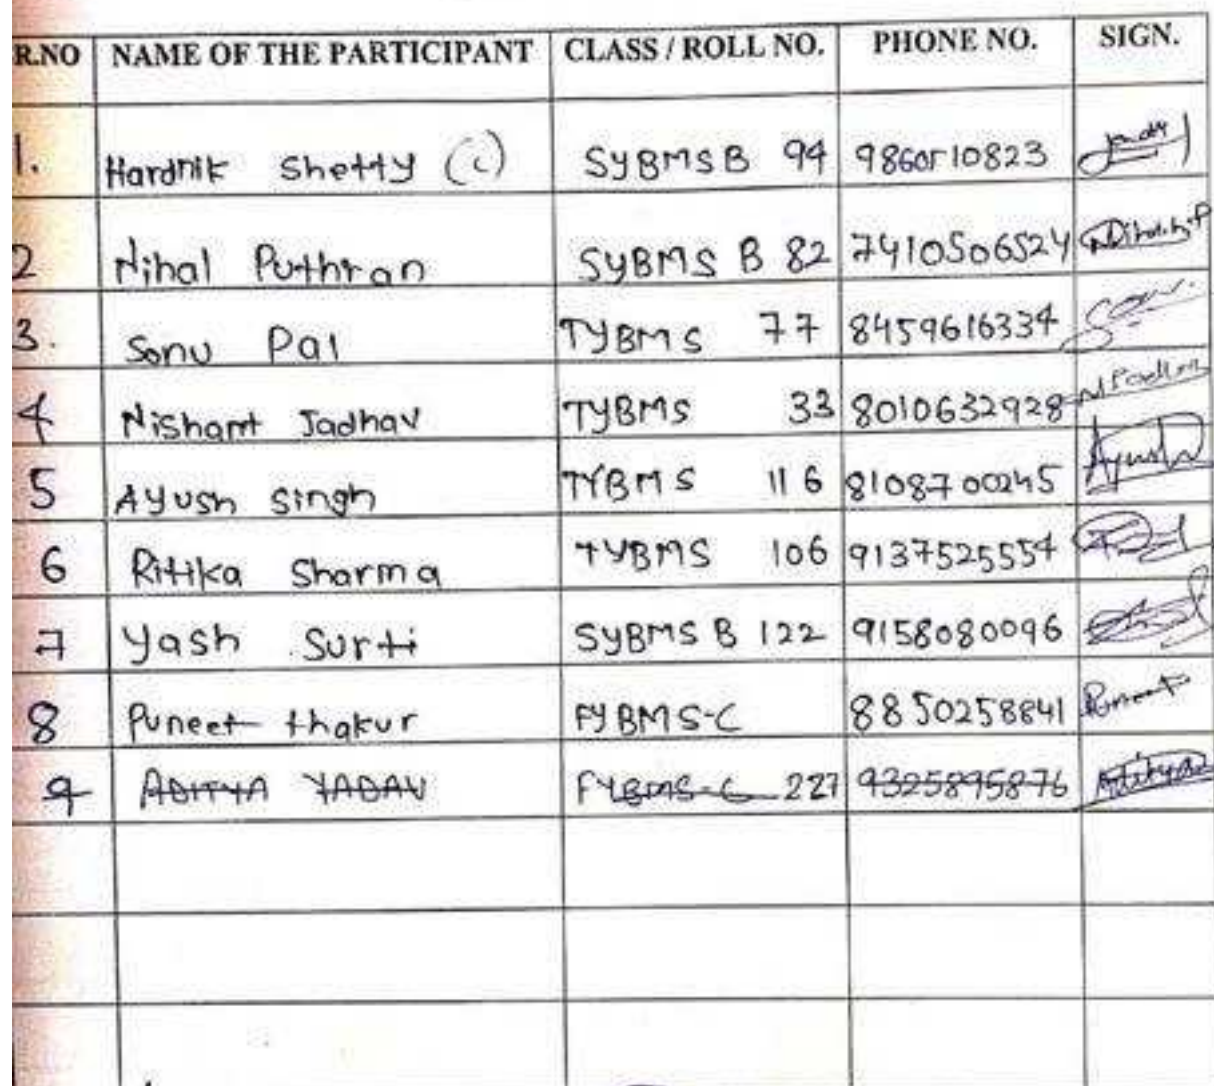 R.NO NAME OF THE PARTICIPANT CLASS / ROLL NO. PHONE NO. SIGN.
1. Hardrik Shetty (c) SYBMS B 94 9860510823
2 Nihal Puthran SYBMS B 82 7410506524
3. Sonu Pal TYBMS 77 8459616334
4 Nishant Jadhav TYBMS 33 8010632928
5 Ayush Singh TYBMS 116 8108700245 Ayush
6 Ritika Sharma TYBMS 106 9137525554
7 Yash Surti SYBMS B 122 9158080096
8 Puneet thakur FYBMS-C 8850258841 Puneet
9 ADITYA YADAV FYBMS-C 227 9325895876 Aditya